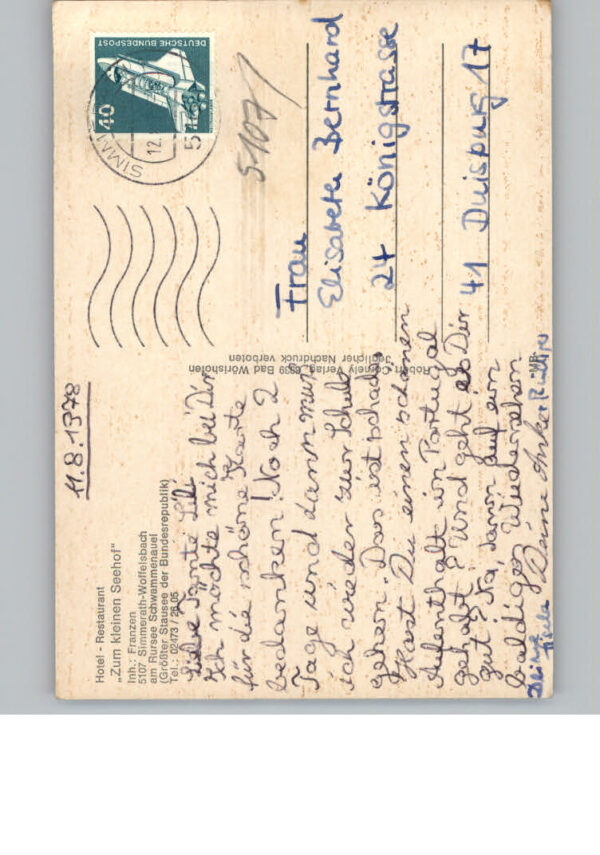 Hotel - Restaurant
„Zum kleinen Seehof"
Inh.: Franzen
5107 Simmerath-Woffelsbach
am Rursee Schwammenauel
(Größter Stausee der Bundesrepublik)
Tel.: 02473 / 26 05
11.8.1978
Liebe Tante Lili
Ich möchte mich bei Dir
für die schöne Karte
bedanken! Noch 2
Tage und dann muß
ich wieder zur Schule
gehen. Das ist schade.
Hast Du einen schönen
Aufenthalt in Portugal
gehabt? Und geht es Dir
gut? Na, dann auf ein
baldiges Wiedersehen
Deine Anke
Robert Cornely Verlag, 8939 Bad Wörishofen
Jeglicher Nachdruck verboten
DEUTSCHE BUNDESPOST
40
SIMM
12.
5
5107
Frau
Elisabeth Bernhard
24 Königstrasse
41 Duisburg 17